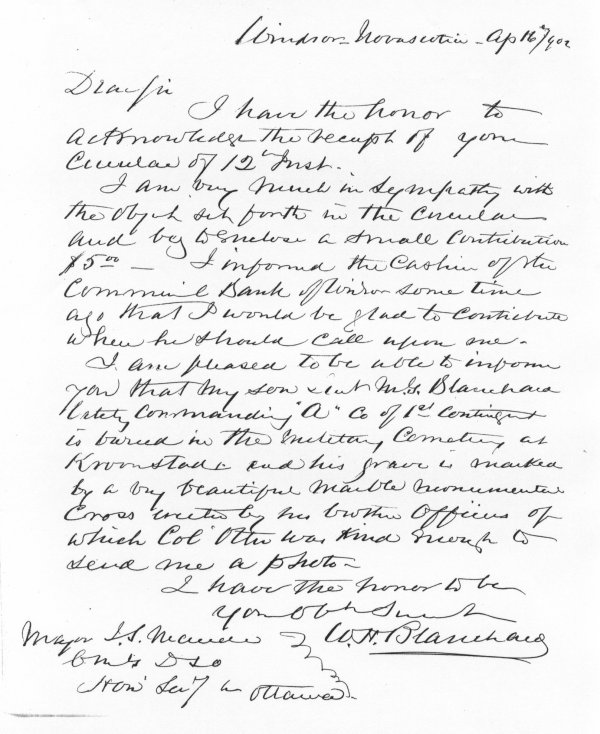 Windsor - Novascotia - Ap 16th/902
Dear Sir
I have the honor to
acknowledge the receipt of your
Circular of 12th Inst.
I am very much in sympathy with
the Object set forth in the Circular
and beg to enclose a small contribution
$5.00 - I informed the Cashier of the
Commercial Bank of Windsor some time
ago that I would be glad to contribute
when he should call upon me -
I am pleased to be able to inform
you that my son Lieut M.G. Blanchard
lately Commanding "A" Co of 1st Contingent
is buried in the Military Cemetery at
Kroonstad - and his grave is marked
by a very beautiful Marble monumental
Cross erected by his brother Officers of
which Col Otter was kind enough to
send me a photo -
I have the honor to be
Your Obt Servt
W.H. Blanchard
Major
DSO
Hon Secy
Ottawa